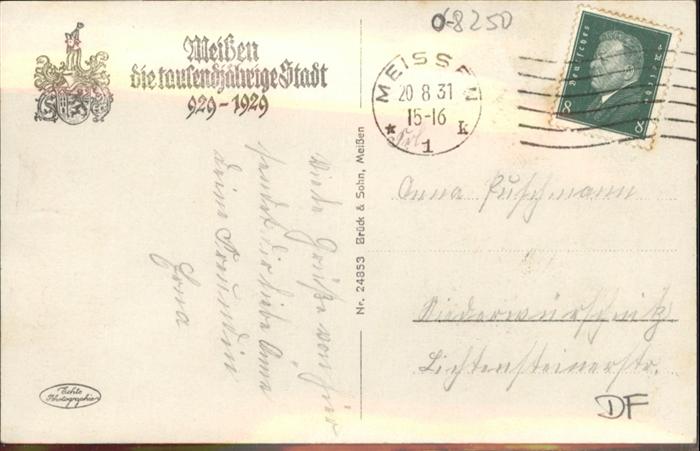 68250
Meißen
die tausendjährige Stadt
929-1929
MEISSEN
20 8 31
15-16
* 1 k
Deutsches Reich
8 8
Viele Grüße von hier
sendet dir liebe Anna
deine Freundin
Erna
Nr. 24853 Brück & Sohn, Meißen
Anna Puschmann
Niederwürschnitz
Lichtensteinerstr.
Echte
Photographie
DF